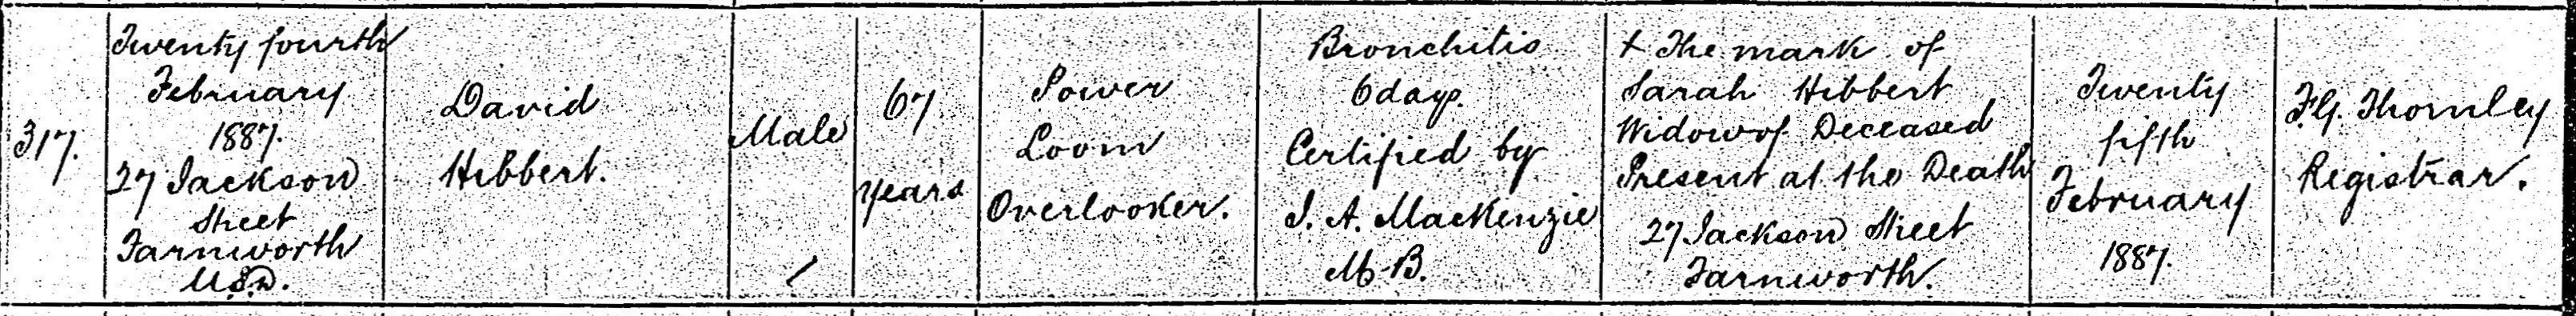 317.
Twenty fourth
February
1887.
27 Jackson
Street
Farnworth
U.S.D.
David
Hibbert.
Male
67
years
Power
Loom
Overlooker.
Bronchitis
6 days.
Certified by
J. A. MacKenzie
M.B.
X The mark of
Sarah Hibbert
Widow of Deceased
Present at the Death
27 Jackson Street
Farnworth.
Twenty
fifth
February
1887.
Thornley
Registrar.